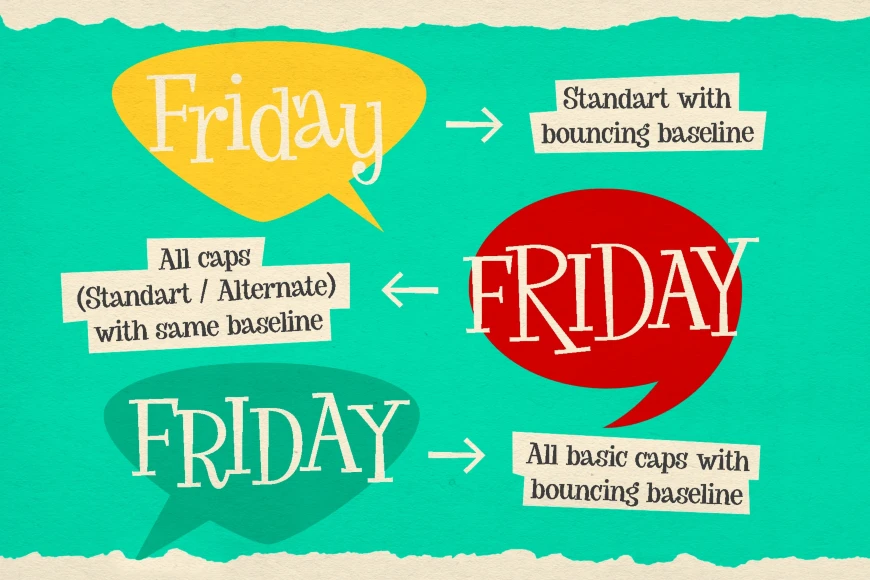 Friday
Standart with
bouncing baseline
All caps
(Standart / Alternate)
with same baseline
FRIDAY
FRIDAY
All basic caps with
bouncing baseline